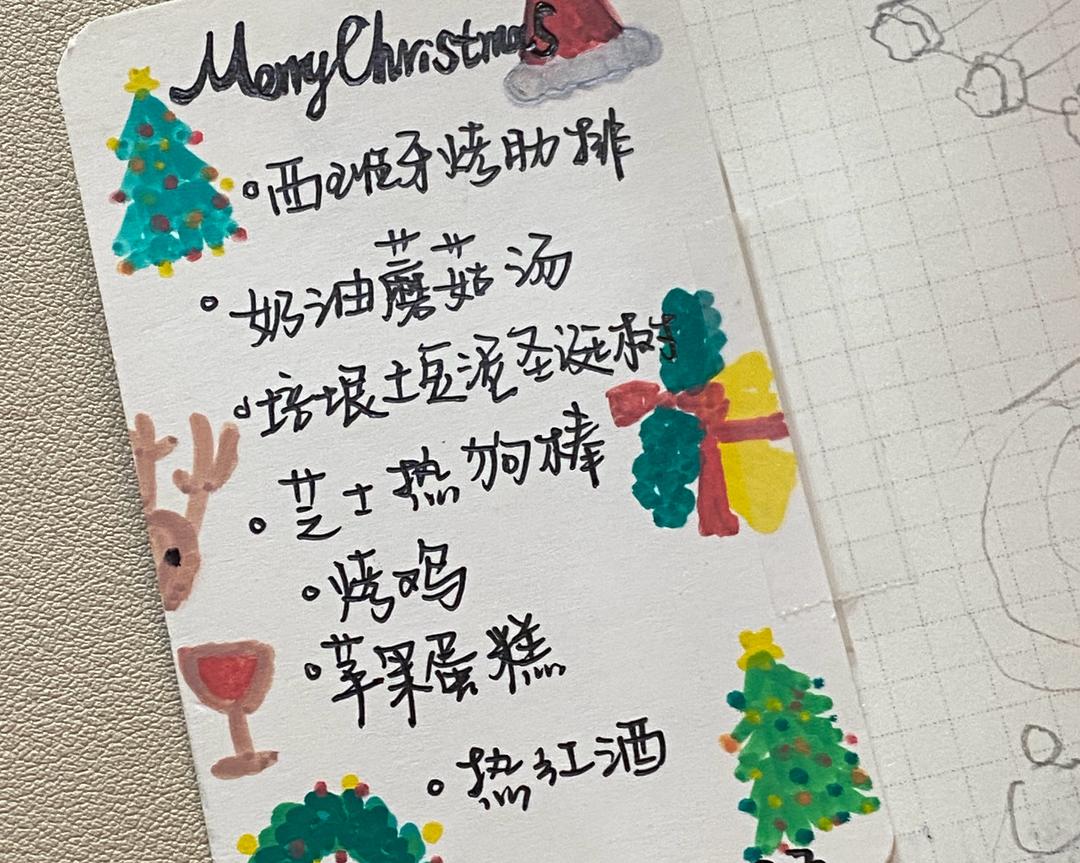 Merry Christmas
西班牙烤肋排
奶油蘑菇汤
培根土豆泥圣诞树
芝士热狗棒
烤鸡
苹果蛋糕
热红酒